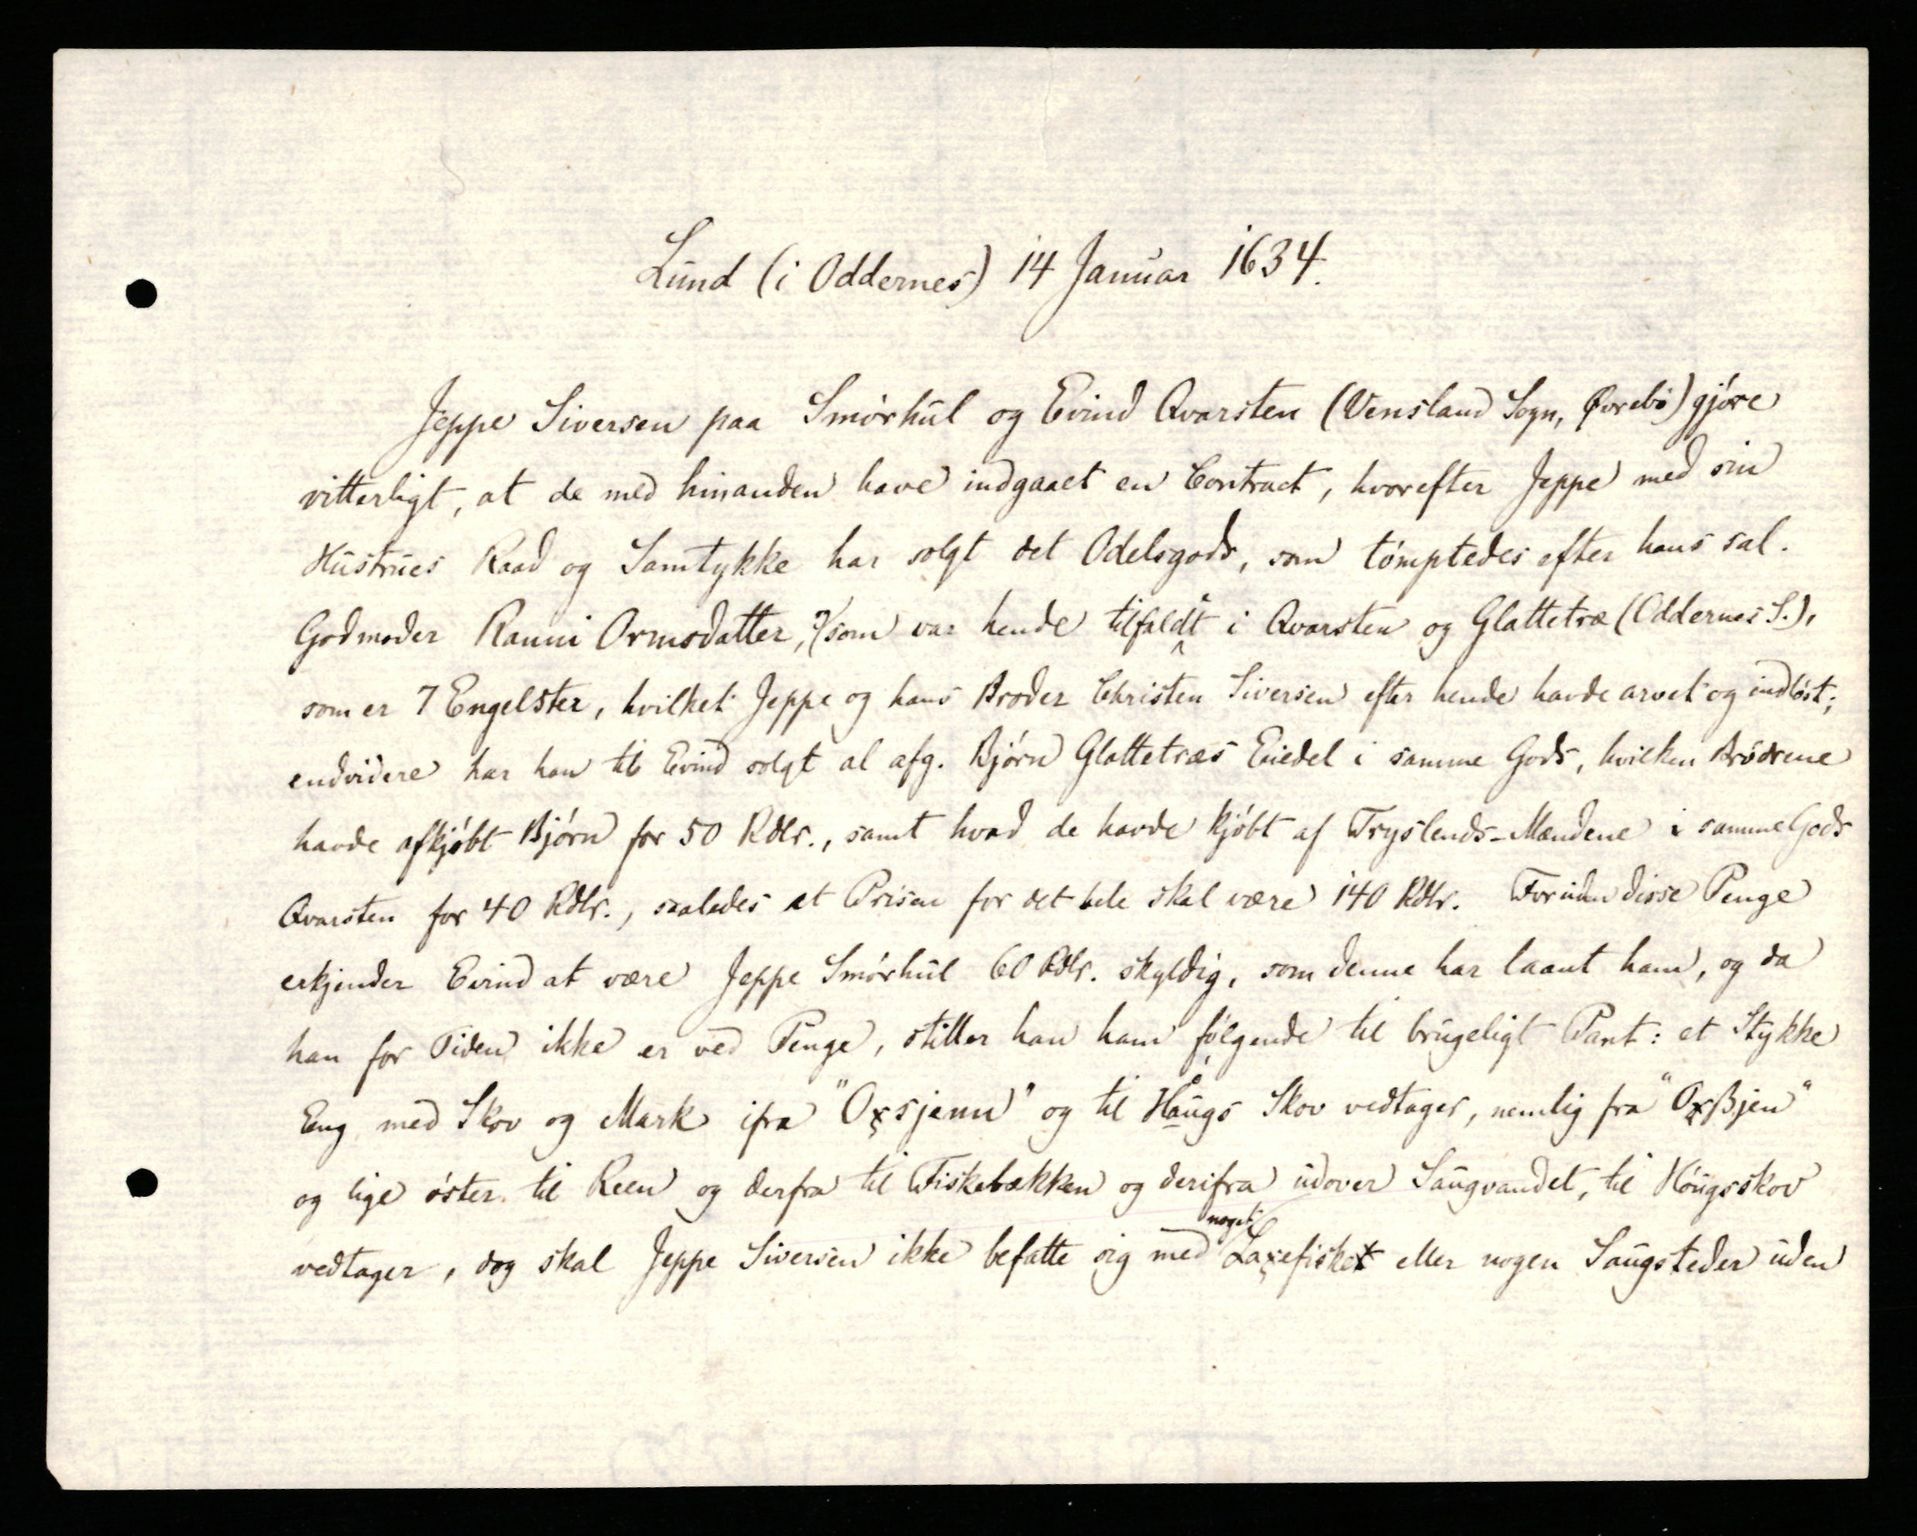 Lund (i Oddernes) 14 Januar 1634.
Jeppe Siversen paa Smørhul og Evind Qvarsten (Vensland Sogn, Øvrebø) gjøre
vitterligt, at de med hinanden have indgaaet en Contract, hvorefter Jeppe med sin
Hustrues Raad og Samtykke har solgt det Odelsgods, som tømptedes efter hans sal.
Godmoder Ranni Ormsdatter, ?(som var hende tilfaldt i Qvarsten og Glattetræ (Oddernes S.),
som er 7 Engelster, hvilket Jeppe og hans Broder Christen Siversen efter hende havde arvet og indløst;
endvidere har han til Evind solgt al afg. Bjørn Glattetræs Eiedel i samme Gods, hvilken Brødrene
havde afkjøbt Bjørn for 50 Rdlr., samt hvad de havde kjøbt af Tryslands-Mændene i samme Gods
Qvarsten for 40 Rdlr., saaledes at Prisen for det hele skal være 140 Rdlr. Foruden disse Penge
erkjender Evind at være Jeppe Smørhul 60 Rdlr. skyldig, som denne har laant ham, og da
han for Tiden ikke er ved Penge, stiller han ham følgende til brugeligt Pant: et Stykke
Eng med Skov og Mark ifra "Oxsjenn" og til Haugs Skov vedtager, nemlig fra "Oxßjen"
og lige øster til Reen og derfra til Fiskebækken og derifra udover Saugvandet, til Høugsskov
vedtager, dog skal Jeppe Siversen ikke befatte sig med noget Laxefisket eller nogen Saugsteder uden